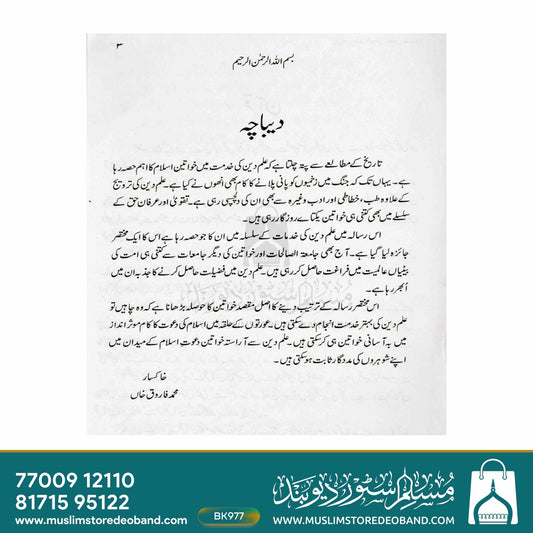 ۳
بسم اللہ الرحمٰن الرحیم
دیباچہ
تاریخ کے مطالعے سے پتہ چلتا ہے کہ علم دین کی خدمت میں خواتین اسلام کا اہم حصہ رہا
ہے۔ یہاں تک کہ جنگ میں زخمیوں کو پانی پلانے کا کام بھی انھوں نے کیا ہے۔ علم دین کی ترویج
کے علاوہ طب، خطاطی اور ادب وغیرہ سے بھی ان کی دلچسپی رہی ہے۔ تقویٰ اور عرفان حق کے
سلسلے میں بھی کتنی ہی خواتین یکتائے روزگار رہی ہیں۔
اس رسالہ میں علم دین کی خدمات کے سلسلہ میں ان کا جو حصہ رہا ہے اس کا ایک مختصر
جائزہ لیا گیا ہے۔ آج بھی جامعۃ الصالحات اور خواتین کی دیگر جامعات سے کتنی ہی امت کی
بیٹیاں عالمیت میں فراغت حاصل کر رہی ہیں۔ علم دین میں فضیلت حاصل کرنے کا جذبہ ان میں
اُبھر رہا ہے۔
اس مختصر رسالہ کے ترتیب دینے کا اصل مقصد خواتین کا حوصلہ بڑھانا ہے کہ وہ چاہیں تو
علم دین کی بہتر خدمت انجام دے سکتی ہیں۔ عورتوں کے حلقہ میں اسلام کی دعوت کا کام موثر انداز
میں بہ آسانی خواتین ہی کر سکتی ہیں۔ علم دین سے آراستہ خواتین دعوتِ اسلام کے میدان میں
اپنے شوہروں کی مددگار ثابت ہو سکتی ہیں۔
خاکسار
محمد فاروق خاں
مسلم سٹور دیوبند
WWW.MUSLIMSTOREDEOBAND.COM
77009 12110
81715 95122
www.muslimstoredeoband.com
BK977
مسلم سٹور دیوبند
WWW.MUSLIMSTOREDEOBAND.COM